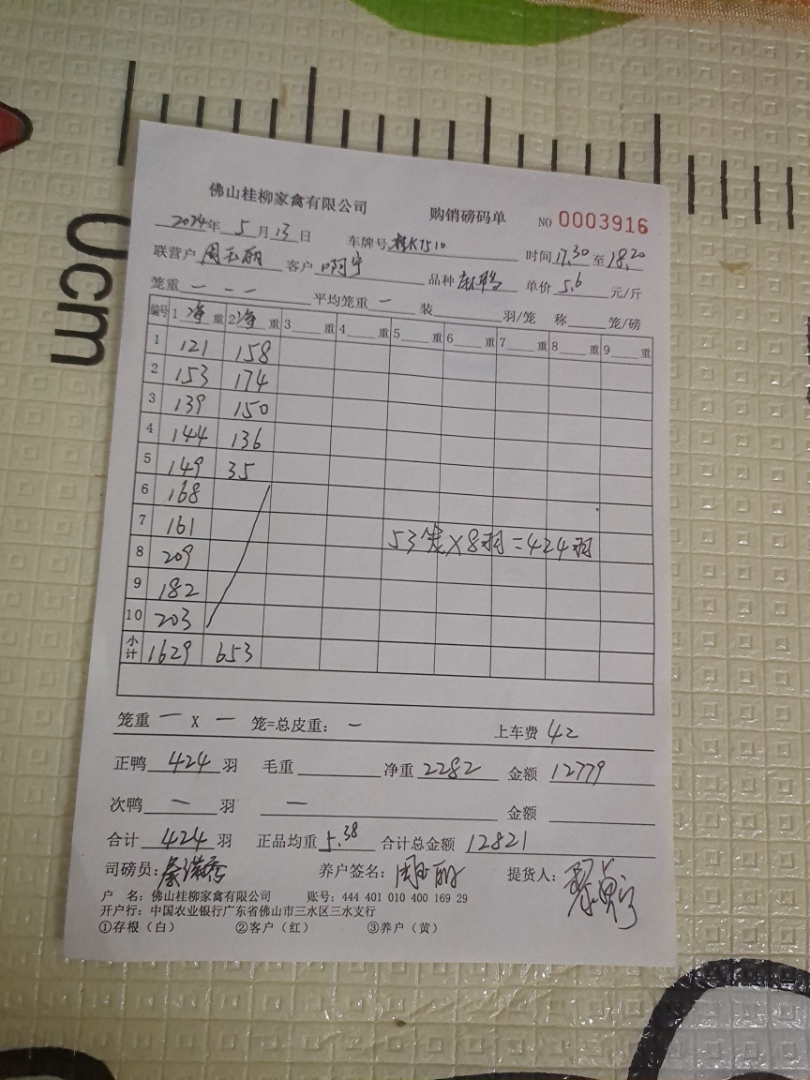 佛山桂柳家禽有限公司 购销磅码单 NO 0003916
2024年 5月 13日 车牌号 桂K7510 时间 17.30 至 18.20
联营户 周玉丽 客户 口啊宇 品种 麻鸭 单价 5.6 元/斤
笼重 — — — 平均笼重 — 装 羽/笼 称 笼/磅
编号 1 净 重 2 净 重 3 重 4 重 5 重 6 重 7 重 8 重 9 重
1 121 158
2 153 174
3 139 150
4 144 136
5 149 35
6 168
7 161 53笼X8羽=424羽
8 209
9 182
10 203
小计 1629 653
笼重 — X — 笼=总皮重: — 上车费 42
正鸭 424 羽 毛重 净重 2282 金额 12779
次鸭 — 羽 — 金额
合计 424 羽 正品均重 5.38 合计总金额 12821
司磅员: 养户签名: 周玉丽 提货人:
户 名: 佛山桂柳家禽有限公司 账号: 444 401 010 400 169 29
开户行: 中国农业银行广东省佛山市三水区三水支行
①存根(白) ②客户(红) ③养户(黄)
0cm